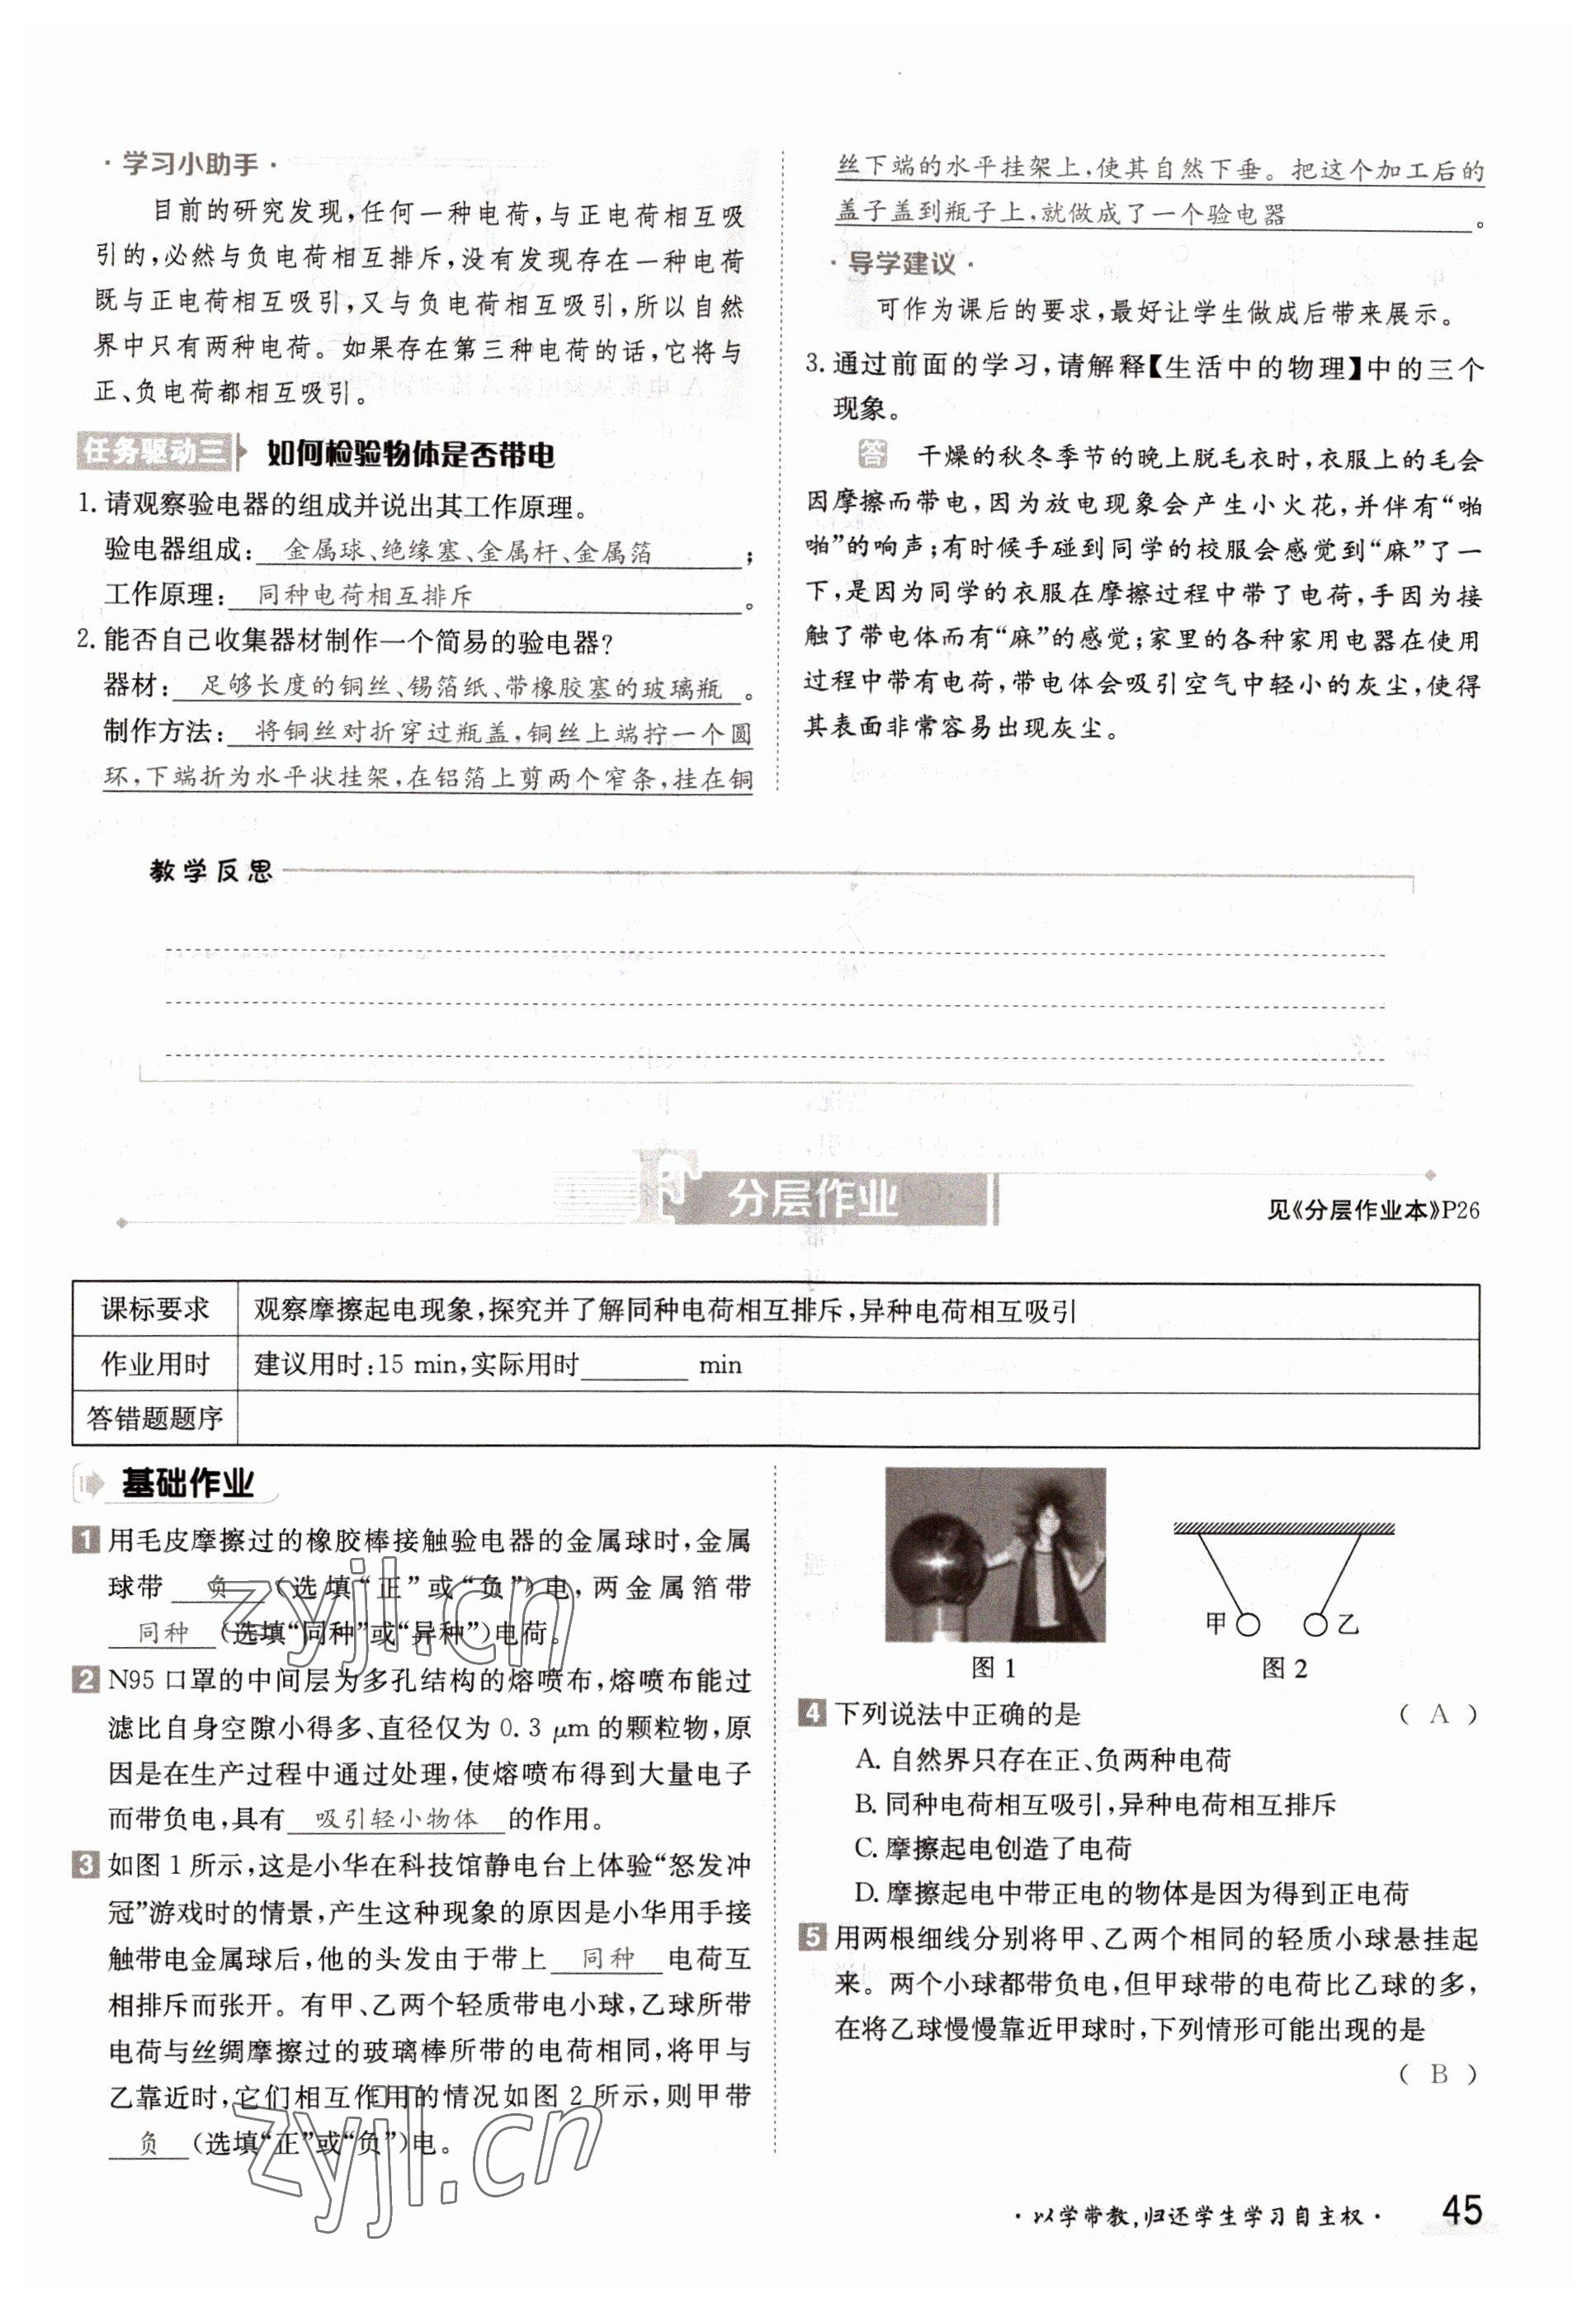 ·学习小助手·
目前的研究发现,任何一种电荷,与正电荷相互吸
引的,必然与负电荷相互排斥,没有发现存在一种电荷
既与正电荷相互吸引,又与负电荷相互吸引,所以自然
界中只有两种电荷。如果存在第三种电荷的话,它将与
正、负电荷都相互吸引。
任务驱动三 如何检验物体是否带电
1. 请观察验电器的组成并说出其工作原理。
验电器组成: 金属球、绝缘塞、金属杆、金属箔 ;
工作原理: 同种电荷相互排斥 。
2. 能否自己收集器材制作一个简易的验电器?
器材: 足够长度的铜丝、锡箔纸、带橡胶塞的玻璃瓶 。
制作方法: 将铜丝对折穿过瓶盖,铜丝上端拧一个圆
环,下端折为水平状挂架,在铝箔上剪两个窄条,挂在铜
丝下端的水平挂架上,使其自然下垂。把这个加工后的
盖子盖到瓶子上,就做成了一个验电器 。
·导学建议·
可作为课后的要求,最好让学生做成后带来展示。
3. 通过前面的学习,请解释【生活中的物理】中的三个
现象。
答 干燥的秋冬季节的晚上脱毛衣时,衣服上的毛会
因摩擦而带电,因为放电现象会产生小火花,并伴有“啪
啪”的响声;有时候手碰到同学的校服会感觉到“麻”了一
下,是因为同学的衣服在摩擦过程中带了电荷,手因为接
触了带电体而有“麻”的感觉;家里的各种家用电器在使用
过程中带有电荷,带电体会吸引空气中轻小的灰尘,使得
其表面非常容易出现灰尘。
教学反思
F 分层作业
见《分层作业本》P26
课标要求 观察摩擦起电现象,探究并了解同种电荷相互排斥,异种电荷相互吸引
作业用时 建议用时:15 min,实际用时____ min
答错题题序
基础作业
1 用毛皮摩擦过的橡胶棒接触验电器的金属球时,金属
球带 负 (选填“正”或“负”)电,两金属箔带
同种 (选填“同种”或“异种”)电荷。
2 N95 口罩的中间层为多孔结构的熔喷布,熔喷布能过
滤比自身空隙小得多、直径仅为 0.3 μm 的颗粒物,原
因是在生产过程中通过处理,使熔喷布得到大量电子
而带负电,具有 吸引轻小物体 的作用。
3 如图 1 所示,这是小华在科技馆静电台上体验“怒发冲
冠”游戏时的情景,产生这种现象的原因是小华用手接
触带电金属球后,他的头发由于带上 同种 电荷互
相排斥而张开。有甲、乙两个轻质带电小球,乙球所带
电荷与丝绸摩擦过的玻璃棒所带的电荷相同,将甲与
乙靠近时,它们相互作用的情况如图 2 所示,则甲带
负 (选填“正”或“负”)电。
甲 乙
图 1 图 2
4 下列说法中正确的是 ( A )
A. 自然界只存在正、负两种电荷
B. 同种电荷相互吸引,异种电荷相互排斥
C. 摩擦起电创造了电荷
D. 摩擦起电中带正电的物体是因为得到正电荷
5 用两根细线分别将甲、乙两个相同的轻质小球悬挂起
来。两个小球都带负电,但甲球带的电荷比乙球的多,
在将乙球慢慢靠近甲球时,下列情形可能出现的是
( B )
zyjl.cn
zyjl.cn
·以学带教,归还学生学习自主权· 45